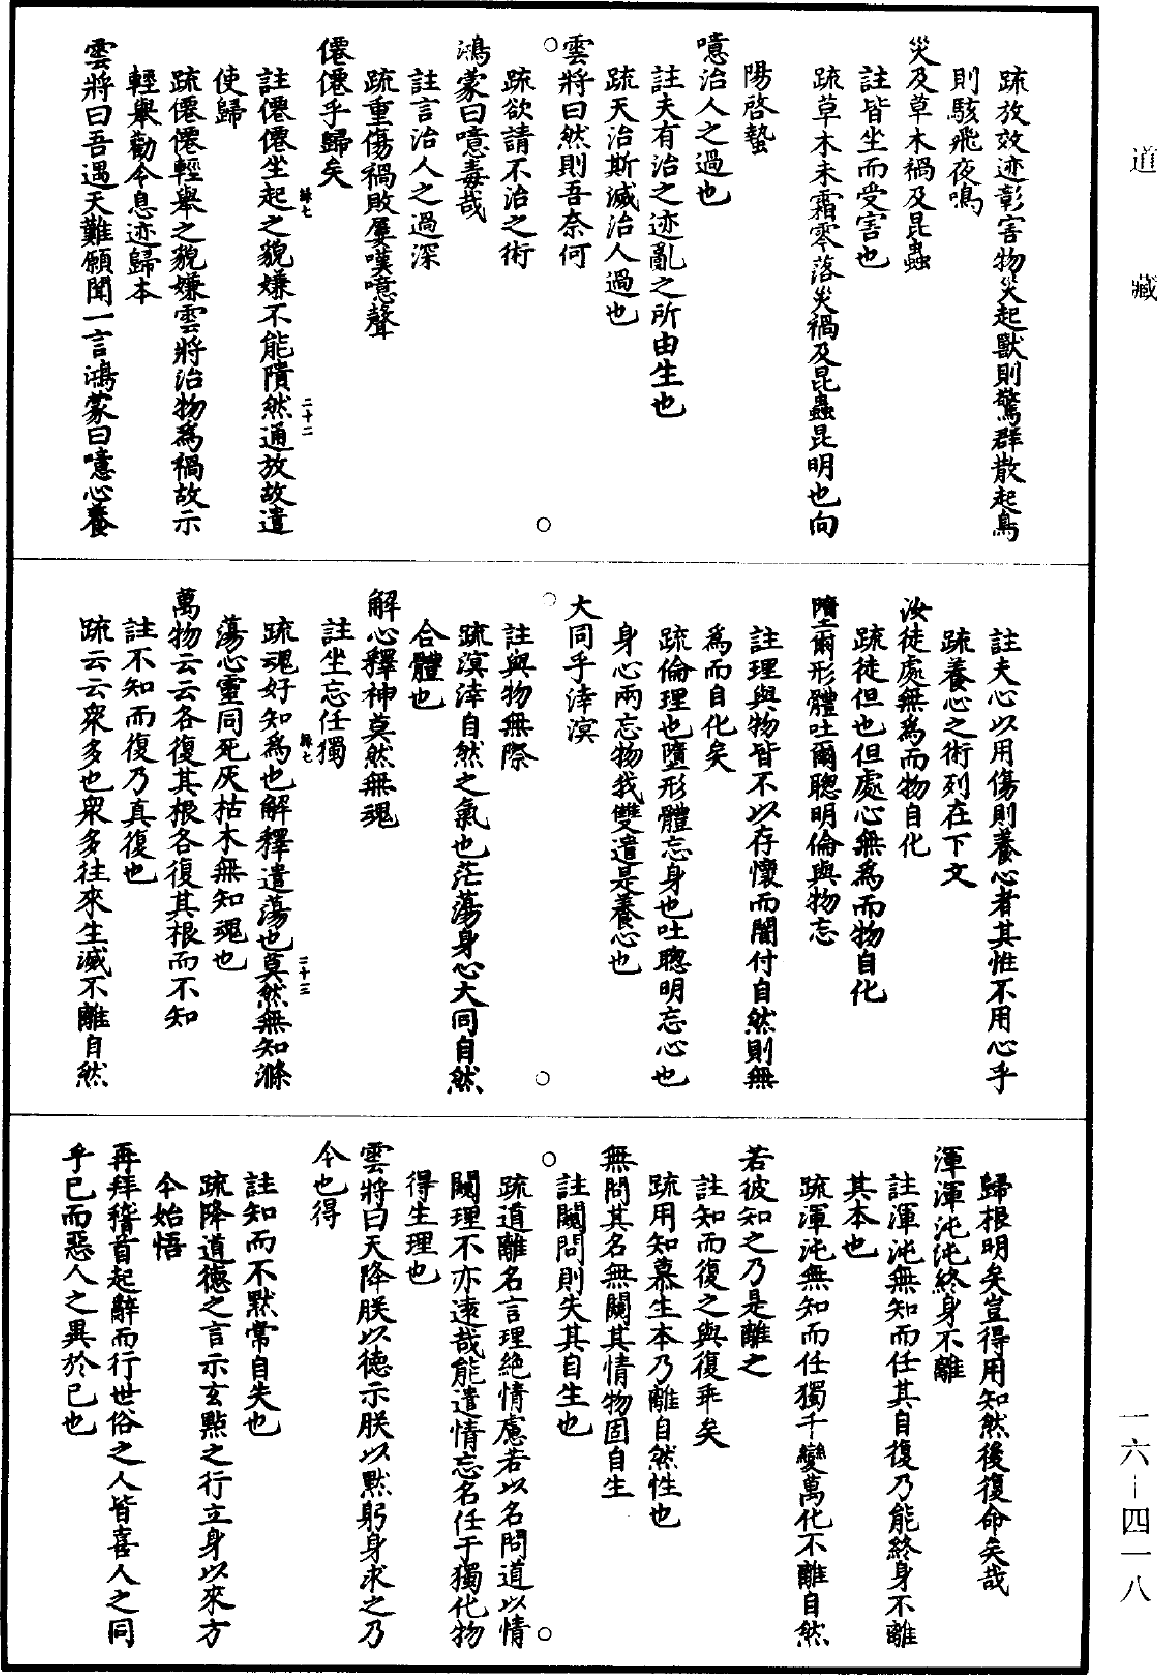 道藏
疏放效迹彰害物災起獸則驚群散起鳥
則駭飛夜鳴
災及草木禍及昆蟲
註皆坐而受害也
疏草木未霜零落災禍及昆蟲昆明也向
陽啓蟄
噫治人之過也
註夫有治之迹亂之所由生也
疏天治斯滅治人過也
雲將曰然則吾奈何
疏欲請不治之術
鴻蒙曰噫毒哉
註言治人之過深
疏重傷禍敗屢嘆噫聲
僊僊乎歸矣
註僊僊坐起之貌嫌不能隤然通放故遣
使歸
疏僊僊輕舉之貌嫌雲將治物爲禍故示
輕舉勸令息迹歸本
雲將曰吾遇天難願聞一言鴻蒙曰噫心養
二十二
註夫心以用傷則養心者其惟不用心乎
疏養心之術列在下文
汝徒處無爲而物自化
疏徒但也但處心無爲而物自化
墮爾形體吐爾聰明倫與物忘
註理與物皆不以存懷而闇付自然則無
爲而自化矣
疏倫理也墮形體忘身也吐聰明忘心也
身心兩忘物我雙遣是養心也
大同乎涬溟
註與物無際
疏溟涬自然之氣也茫蕩身心大同自然
合體也
解心釋神莫然無魂
註坐忘任獨
疏魂好知爲也解釋遣蕩也莫然無知滌
蕩心靈同死灰枯木無知魂也
萬物云云各復其根各復其根而不知
註不知而復乃真復也
疏云云衆多也衆多往來生滅不離自然
二十三
歸根明矣豈得用知然後復命矣哉
渾渾沌沌終身不離
註渾沌無知而任其自復乃能終身不離
其本也
疏渾沌無知而任獨千變萬化不離自然
若彼知之乃是離之
註知而復之與復乖矣
疏用知慕生本乃離自然性也
無問其名無闚其情物固自生
註闚問則失其自生也
疏道離名言理絶情慮若以名問道以情
闚理不亦遠哉能遣情忘名任于獨化物
得生理也
雲將曰天降朕以德示朕以默躬身求之乃
今也得
註知而不默常自失也
疏降道德之言示玄默之行立身以來方
今始悟
再拜稽首起辭而行世俗之人皆喜人之同
乎已而惡人之異於已也
一六—四一八